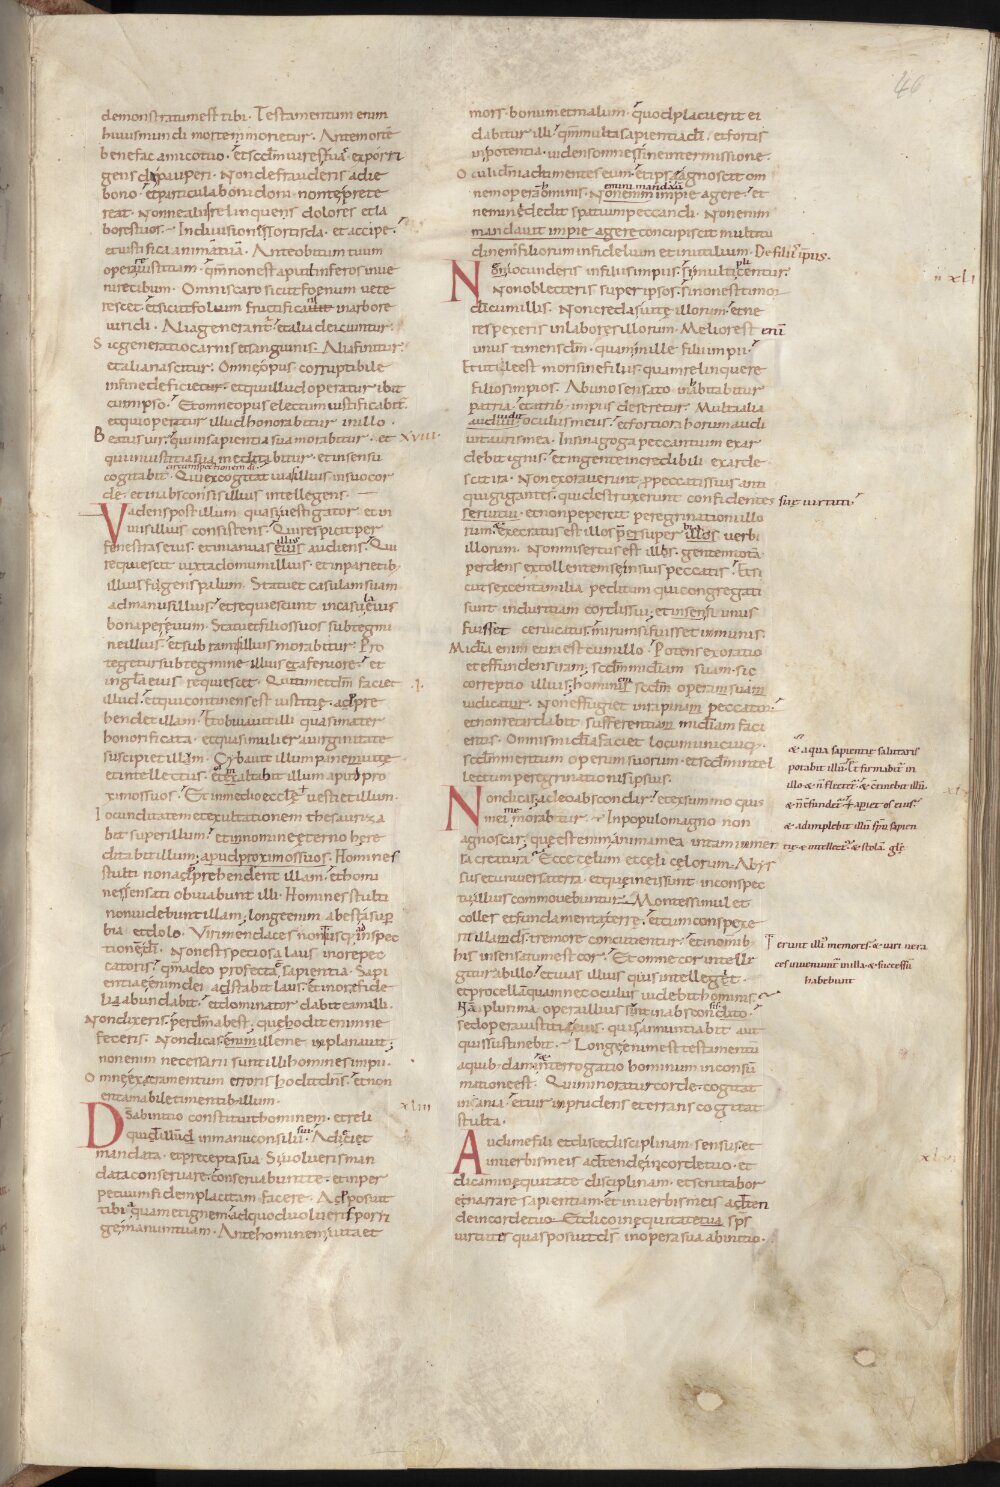 46
demonstratum est tibi. Testamentum enim
huius mundi morte morietur. Ante morte
benefac amico tuo. et scdm uires tuas exporri
gens da pauperi. Non defrauderis a die
bono. et particula boni doni non te prete
reat. Nonne aliis relinquens dolores et la
bores tuos. In diuisione sortis da. et accipe.
et iustifica animam tuam. Ante obitum tuum
operare iustitiam. qm non est apud inferos inue
nire cibum. Omnis caro sicut foenum uete
rescet. et sicut folium fructificans in arbore
uiridi. Alia generant. et alia deiciuntur.
Sic generatio carnis et sanguinis. Alia finitur.
et alia nascitur. Omne opus corruptibile
in fine deficietur. et qui illud operatur ibit
cum ipso. Et omne opus electum iustificabit.
et qui operatur illud honorabitur in illo.
Beatus uir. qui in sapientia sua morabitur. et
XVIII
qui in iustitia sua meditabitur. et in sensu
circumspectionem di
cogitabit. Qui excogitat uias illius in suo cor
de. et in absconsis illius intellegens.
Vadens post illum quasi uestigator. et in
uiis illius consistens. Qui respicit per
fenestras eius. et in ianuas eius audiens. Qui
requiescit iuxta domum illius. et in parietib
illius figens palum. Statuet casulam suam
ad manus illius. et requiescunt in casula eius
bona per euum. Statuet filios suos sub tegmi
ne illius. et sub ramis illius morabitur. Pro
tegetur sub tegmine illius a feruore. et
in gla eius requiescet. Qui timet dm faciet
illud. et qui continens est iustitie. adpre
hendet illam. Et obuiauit illi quasi mater
honorificata. et quasi mulier a uirginitate
suscipiet illum. Cybauit illum pane uite
et intellectus. et exaltabit illum apud pro
ximos suos. Et in medio eccle uestiet illum.
Iocunditatem et exultationem thesauriza
bit super illum. et in nomine eterno here
ditabit illum. apud proximos suos. Homines
stulti non adprehendent illam. et homi
nes sensati obuiabunt illi. Homines stulti
non uidebunt illam. longe enim abest a sup
bia et dolo. Viri mendaces
tione di. Non est speciosa laus in ore pec
catoris. qm a deo profecta sapientia. Sapi
entie enim dei adstabit laus. et in ore fide
lia abundabit. et dominator dabit eam illi.
Non dixeris. per dm abest. que hodit enim ne
feceris. Non dicas. enim ille me inplanauit.
non enim necessarii sunt illi homines impii.
Omne exsacramentum erroris hodit dns. et non
erit amabile timentib illum.
xliii
Ds ab initio constituit hominem. et reli
quid illud in manu consilii sui. Adiciet
mandata. et precepta sua. Si uolueris man
data conseruare. conseruabunt te. et in per
petuum fidem placitam facere. Adposuit
tibi aquam et ignem. ad quod uolueris porri
ge manum tuam. Ante hominem uita et
mors. bonum et malum. quod placuerit ei
dabitur illi. qm multa sapientia di. et fortis
in potentia. uidens omnes sine intermissione.
Oculi dni ad timentes eum. et ipse agnoscit om
nem opera hominis. Non enim impie agere. et
nemini dedit spatium peccandi. Non enim
mandauit impie agere concupiscit multitu
dinem filiorum infidelium et inutilium. De filiis ipius.
n xli
Non iocunderis in filiis impiis. si multiplicentur.
Non oblecteris super ipsos. si non est timor
di cum illis. Non credas uite illorum. et ne
respexeris in labores illorum. Melior est enim
unus timens dm. quam mille filii impii.
Et utile est mori sine filiis. quam relinquere
filios impios. Ab uno sensato inhabitabitur
patria. et trib impius deseretur. Multa alia
audiuit oculus meus. et fortiora horum audi
uit auris mea. In sinagoga peccantium exar
debit ignis. et in gente incredibili exarde
scit ira. Non exorauerunt p peccatis suis anti
qui gigantes. qui destruxerunt confidentes sue uirtuti
seruitui. et non pepercit peregrinationi illo
rum. et execratus est illos pre super illos uerbi
illorum. Non misertus est illos. gentem tota
perdens extollentem se in suis peccatis. Et si
cut sexcenta milia peditum qui congregati
sunt in duritiam cordis sui. et insensi unus
fuisset ceruicatus. mirum si fuisset inmunis.
Midia enim et ira est cum illo. Potens exoratio
et effundens iram. scdm midiam suam. sic
correptio illius. hominem scdm operam suam
iudicatur. Non effugiet in rapinam peccator.
et non retardabit sufferentiam midiam faci
entis. Omnis midia faciet locum unicuiq.
scdm meritum operum suorum. et scdm intel
lectum peregrinationis ipsius.
Non dicas. a deo abscondar. et ex summo quis
mei me morabitur. In populo magno non
agnoscar. que est enim anima mea in tam inmen
sa creatura. Ecce celum et celi celorum. Abys
sus et uniuersa terra. et que in eis sunt. in conspec
tu illius commouebuntur. Montes simul et
colles et fundamenta terre. et cum conspexe
rit illa ds. tremore concutientur. et in omnib
his insensatum est cor. Et omne cor intelle
gitur ab illo. et uias illius quis intelleget.
et procellam quam nec oculus uidebit hominis.
Nam plurima opera illius sunt in absconditis.
sed opera iustitie eius. quis annuntiabit aut
quis sustinebit. Longe enim est testamentum
a quib dam. interrogatio hominum in consu
matione est. Qui minoratur corde. cogitat
inania. et uir inprudens et errans cogitat
stulta.
xlvi
Audi me fili et disce disciplinam sensus. et
in uerbis meis adtende in corde tuo. et
dicam in equitate disciplinam. et scrutabor
enarrare sapientiam. et in uerbis meis adten
de in corde tuo. Et dico in equitate tua sps
uirtutes quas posuit ds in opera sua ab initio.
& aqua sapientie salutaris
potabit illu. Et firmabit in
illo & n flectet. & continebit illu
& n confundet. & apiet os eius
& adimplebit illu spu sapien
tie & intellect. & stola gle
erunt illi memores. & uiri uera
ces inueniunt in illa. & successu
habebunt